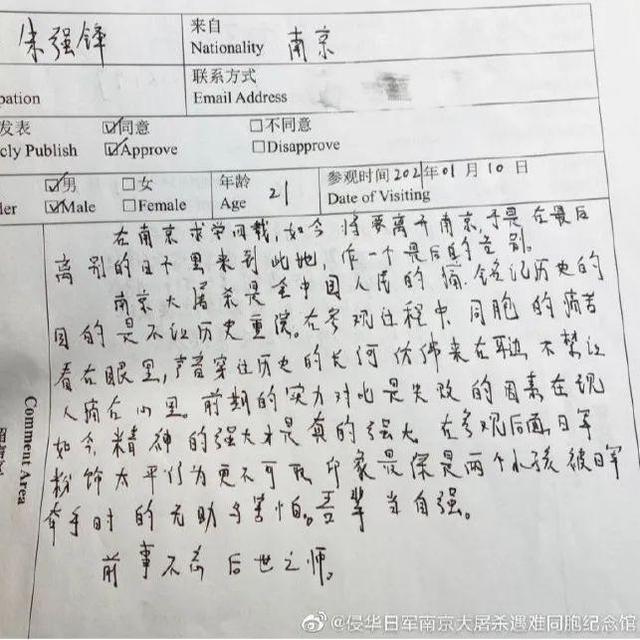 朱强锋 来自 Nationality 南京
联系方式
pation Email Address
发表 ☑同意 □不同意
cly Publish ☑Approve □Disapprove
☑男 □女 年龄 21 参观时间 2021年01月10日
der ☑Male □Female Age Date of Visiting
在南京求学四载,如今将要离开南京,于是在最后
离别的日子里来到此地,作一个最后的告别。
南京大屠杀是全中国人民的痛,铭记历史的
目的是不让历史重演。在参观过程中,同胞的痛苦
看在眼里,声音穿过历史的长河仿佛来在耳边,不禁让
人痛在心里。前期的实力对比是失败的因素,在现
如今,精神的强大才是真的强大。在参观后面,日军
粉饰太平行为更不可取,印象最深是两个小孩被日军
牵手时的无助与害怕。吾辈当自强。
前事不忘 后世之师。
Comment Area
@侵华日军南京大屠杀遇难同胞纪念馆